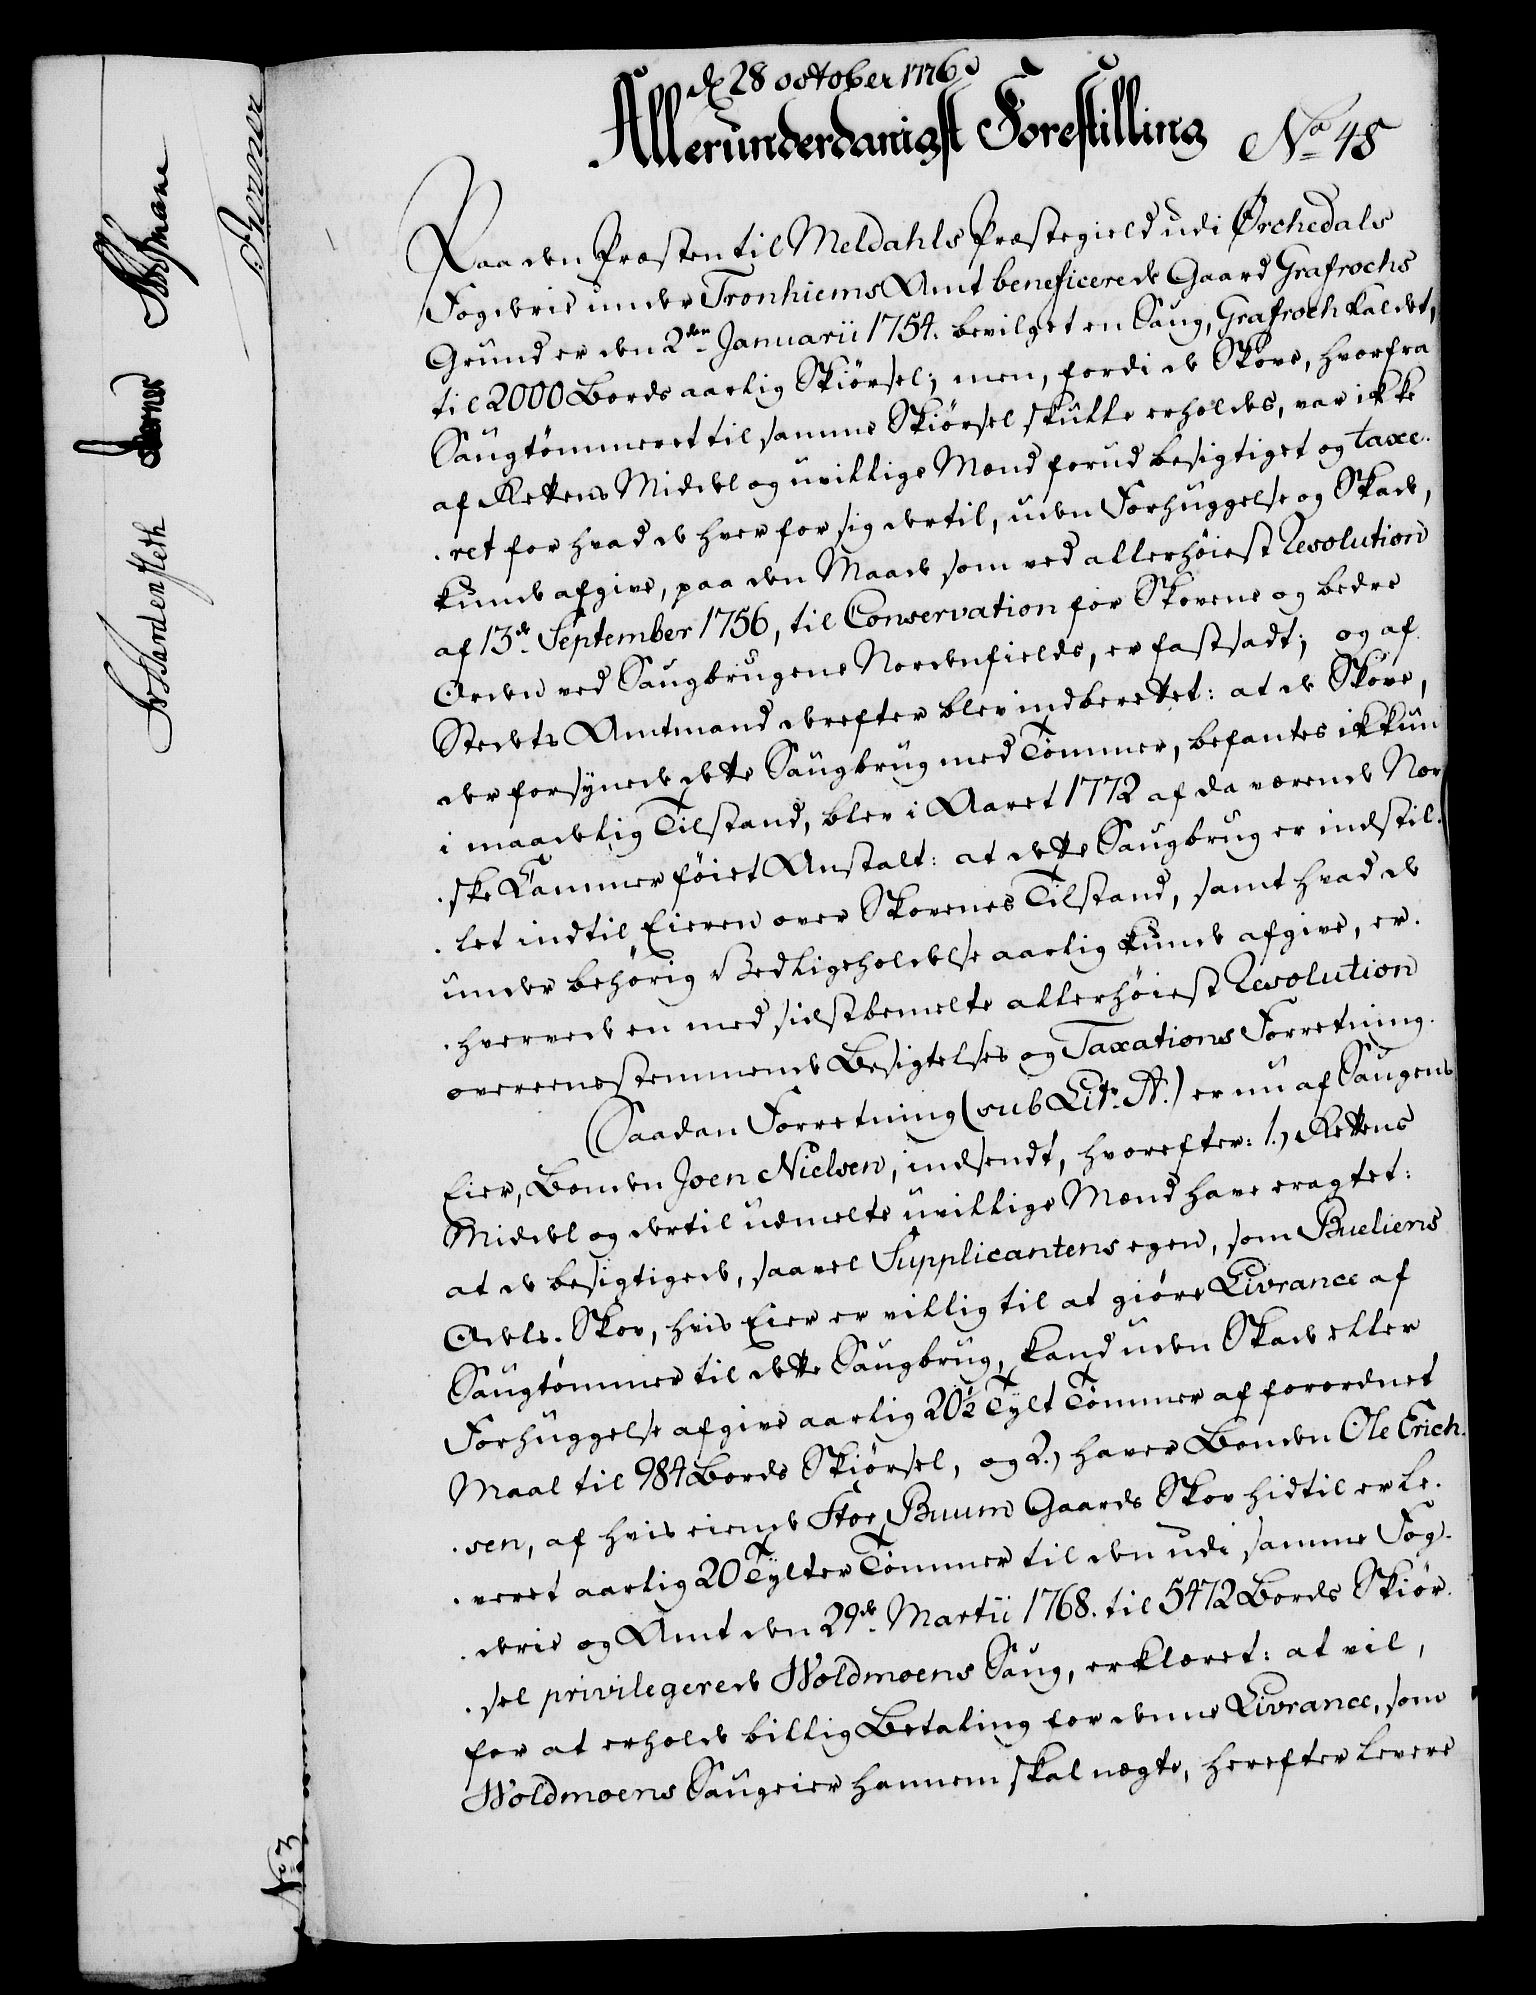 d 28 october 1776
Allerunderdanigst Forestilling No 48
Paa den Præsten til Meldahls Præstegield udi Ørchedals
Fogderie under Tronhiems Amt beneficerede Gaard Grafrochs
Grund er den 2den Januarii 1754. bevilget en Saug, Grafroch kaldet,
til 2000 Bords aarlig Skiørsel; men, fordi de Skove, hvorfra
Saugtømmeret til samme Skiørsel skulle erholdes, var ikke
af Rettens Middel og uvillige Mænd forud besigtiget og taxe-
-ret for hvad de hver for sig dertil, uden Forhuggelse og Skade,
kunde afgive, paa den Maade som ved allerhøiest Resolution
af 13de September 1756, til Conservation for Skovene og bedre
Orden ved Saugbrugene Nordenfields, er fastsadt; og af
Stedets Amtmand derefter blev indberettet: at de Skove,
der forsynede dette Saugbrug med Tømmer, befantes ikkun
i maadelig Tilstand, blev i Aaret 1772 af da værende Nor-
-ske Kammer føiet Anstalt: at dette Saugbrug er indstil-
-let indtil Eieren over Skovenes Tilstand, samt hvad de
under behørig Vedligeholdelse aarlig kunde afgive, er-
-hvervede en med sidstbemelte allerhøiest Resolution
overeensstemmende Besigtelses og Taxations Forretning.
Saadan Forretning (sub Litr. A.) er nu af Saugens
Eier, Bonden Joen Nielsen, indsendt, hvorefter: 1.) Rettens
Middel og dertil udmelte uvillige Mænd have eragtet:
at de besigtigede, saavel Supplicantens egen, som Bueliens
Odels-Skov, hvis Eier er villig til at giøre Livrance af
Saugtømmer til dette Saugbrug, kand uden Skade eller
Forhuggelse afgive aarlig 20½ Tylt Tømmer af forordnet
Maal til 984 Bords Skiørsel, og 2.) haver Bonden Ole Erich-
-sen, af hvis eiende Stor Buum Gaards Skov hidtil er le-
-veret aarlig 20 Tylter Tømmer til den udi samme Fog-
-derie og Amt den 29de Martii 1768. til 5472 Bords Skiør-
-sel privilegerede Woldmoens Saug, erklæret: at vil,
for at erholde billig Betaling for denne Livrance, som
Woldmoens Saugeier hannem skal nægte, herefter levere
No 3